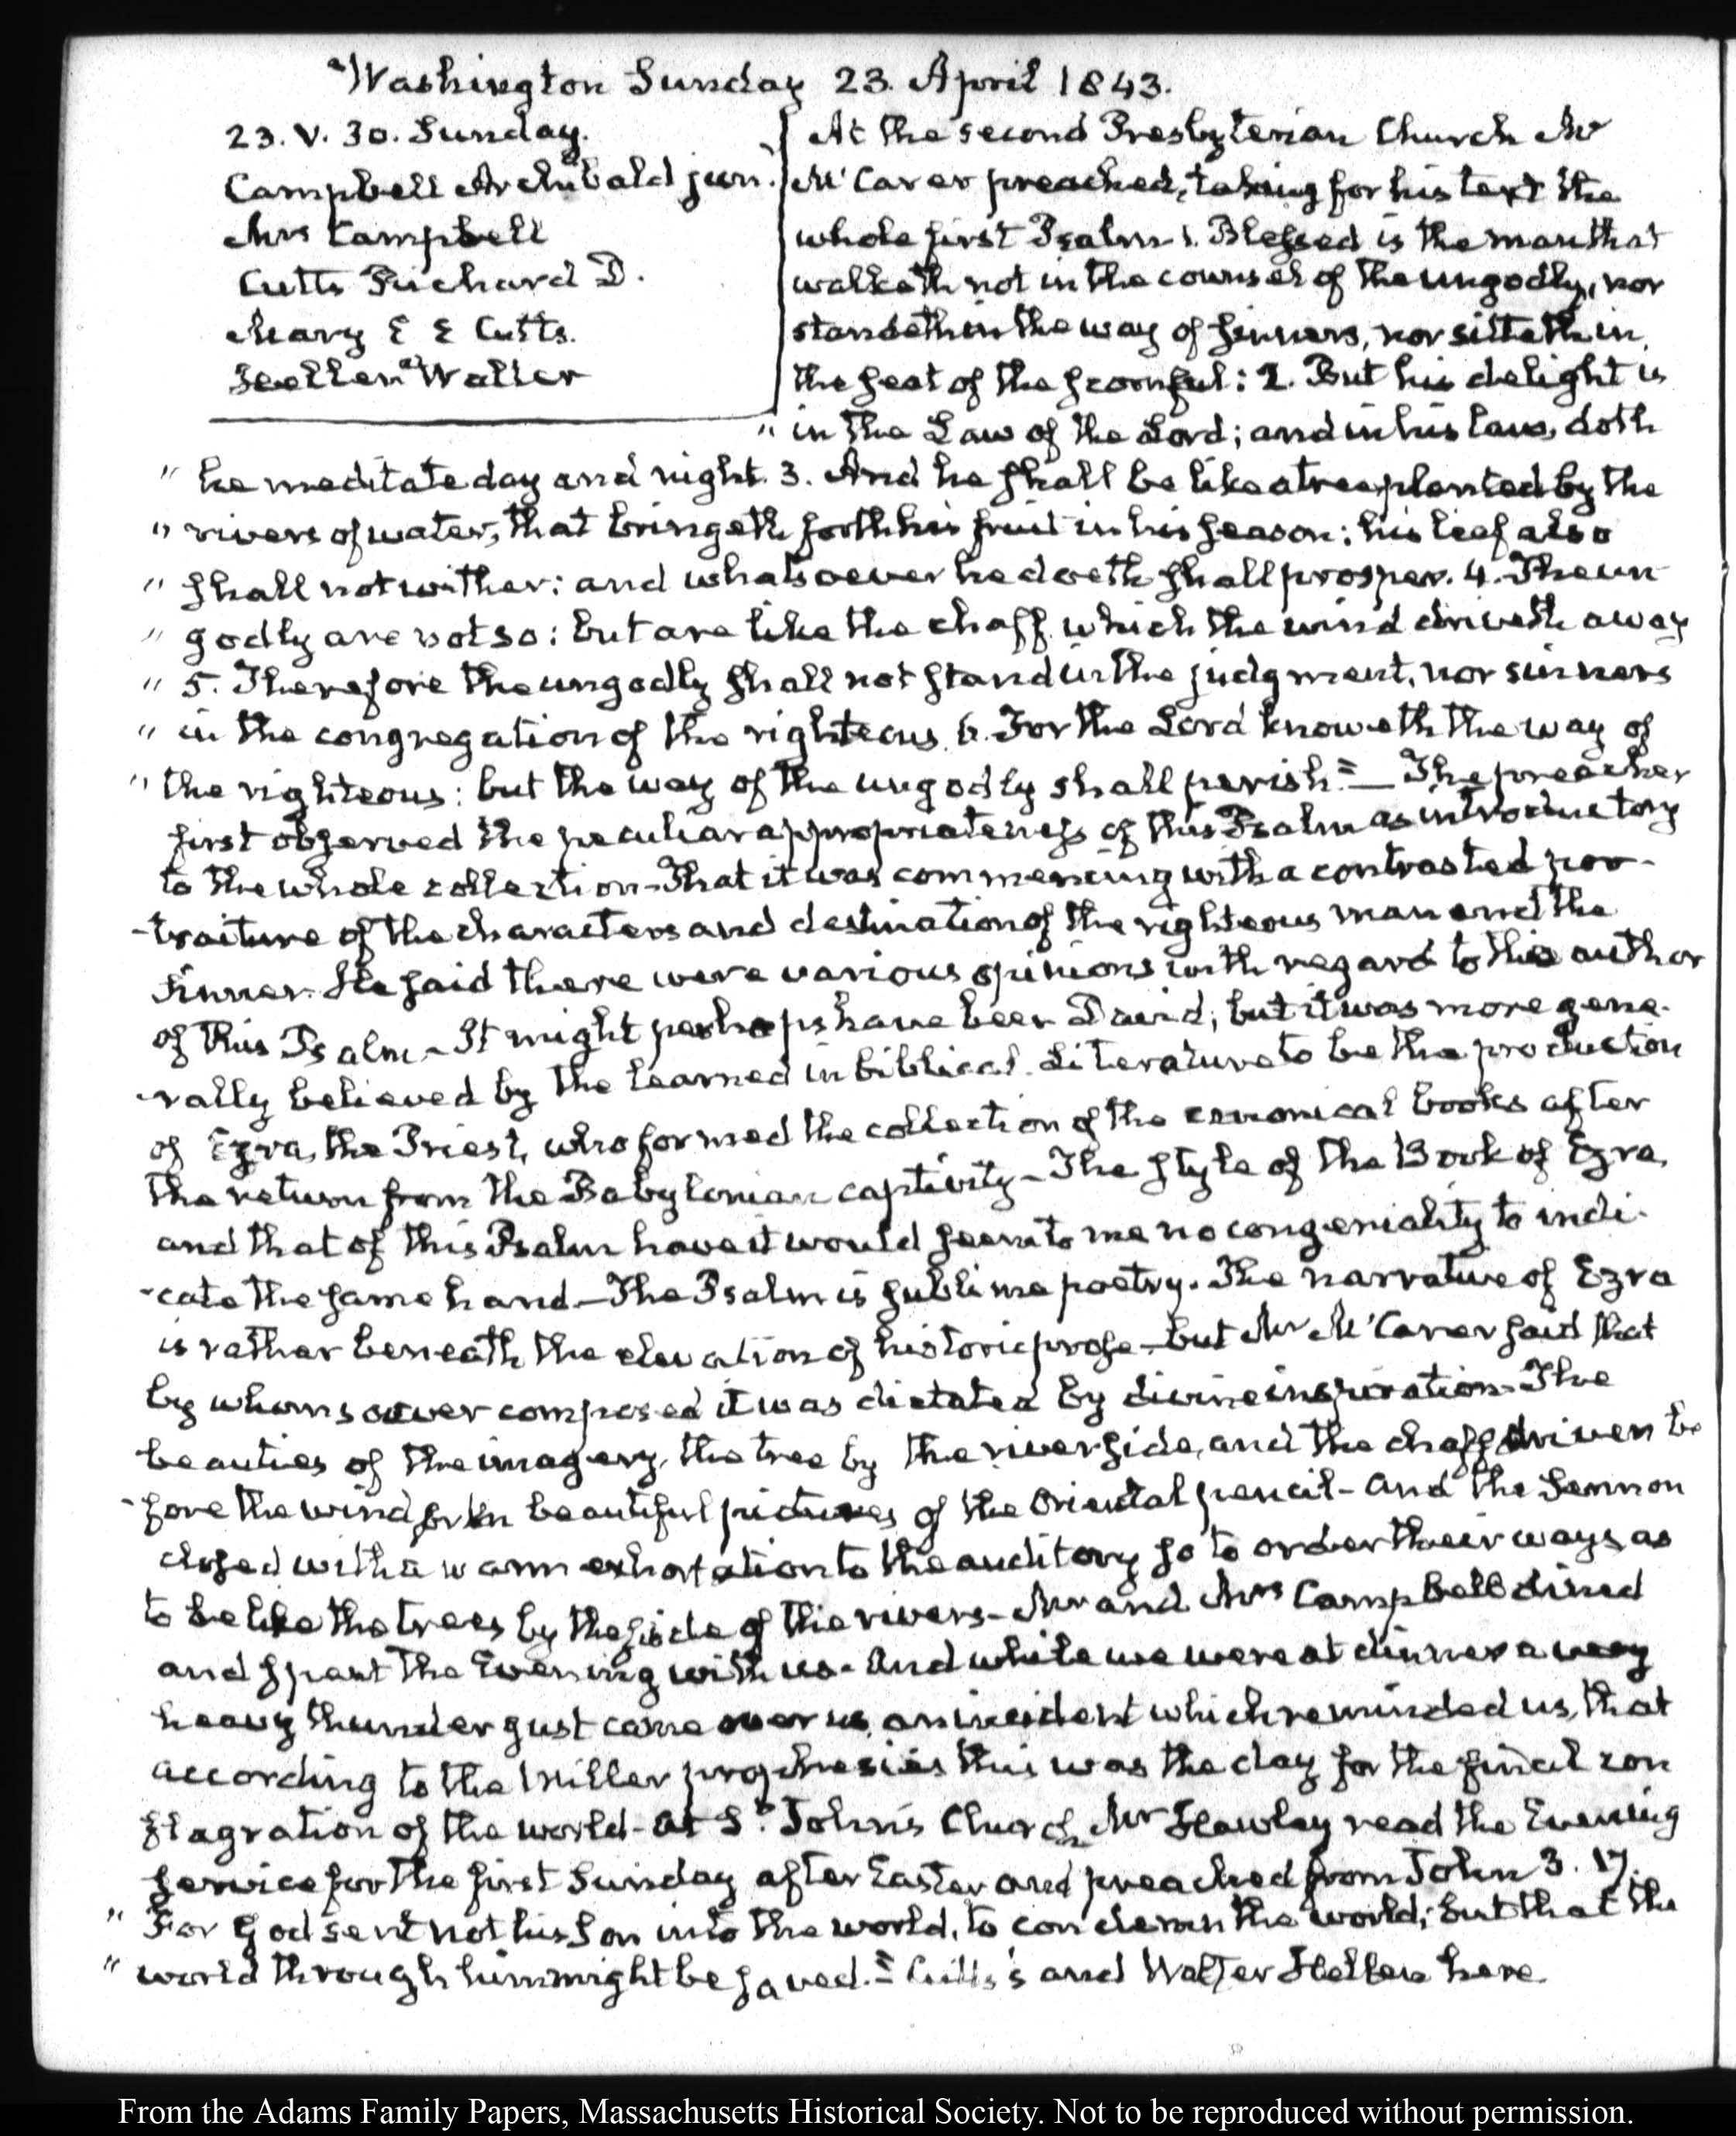 Washington Sunday 23. April 1843.
23. V. 30. Sunday.
Campbell Archibald jun.
Mrs Campbell
Cutts Richard D.
Mary E E Cutts.
Hellen Walter
At the second Presbyterian Church Mr
McCarer preached, taking for his text the
whole first Psalm 1. Blessed is the man that
walketh not in the counsel of the ungodly, nor
standeth in the way of sinners, nor sitteth in
the seat of the scornful: 2. But his delight is
" in the Law of the Lord; and in his law, doth
" he meditate day and night. 3. And he shall be like a tree planted by the
" rivers of water, that bringeth forth his fruit in his season: his leaf also
" shall not wither: and whatsoever he doeth shall prosper. 4. The un-
" godly are not so: but are like the chaff which the wind driveth away
" 5. Therefore the ungodly shall not stand in the judgment, nor sinners
" in the congregation of the righteous 6. For the Lord knoweth the way of
" the righteous: but the way of the ungodly shall perish." — The preacher
first observed the peculiar appropriateness of this Psalm as introductory
to the whole collection - That it was commencing with a contrasted por-
-traiture of the characters and destination of the righteous man and the
sinner. He said there were various opinions with regard to the author
of this Psalm - It might perhaps have been David; but it was more gene-
-rally believed by the learned in biblical Literature to be the production
of Ezra, the Priest, who formed the collection of the canonical books after
the return from the Babylonian captivity - The style of the Book of Ezra,
and that of this Psalm have it would seem to me no congeniality to indi-
-cate the same hand - The Psalm is sublime poetry. The narrative of Ezra
is rather beneath the elevation of historic prose - but Mr McCarer said that
by whomsoever composed it was dictated by divine inspiration - The
beauties of the imagery, the tree by the river side, and the chaff driven be
-fore the wind beautiful pictures of the Oriental pencil - and the Sermon
closed with a warm exhortation to the auditory so to order their ways, as
to be like the trees by the side of the rivers - Mr and Mrs Campbell dined
and spent the Evening with us - And while we were at dinner a very
heavy thunder gust came over us, an incident which reminded us, that
according to the Miller prophesies this was the day for the final con
flagration of the world - At St. John's Church Mr Hawley read the Evening
service for the first Sunday after Easter and preached from John 3. 17.
" For God sent not his Son into the world, to condemn the world; but that the
" world through him might be saved." Cutts's and Walter Hellen here
From the Adams Family Papers, Massachusetts Historical Society. Not to be reproduced without permission.